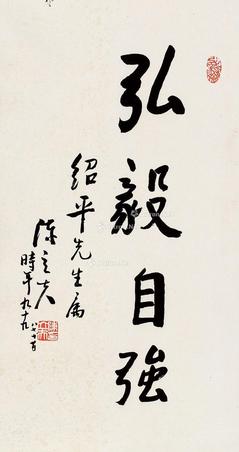 弘毅自強
紹平先生属
陳立夫
時年九十九